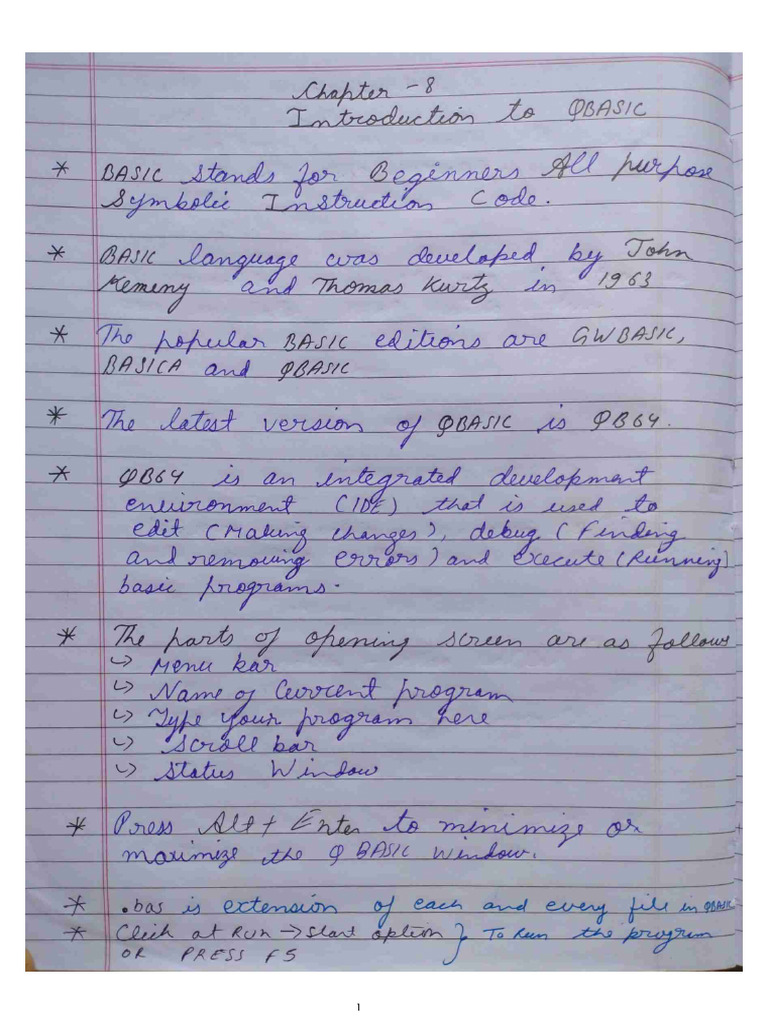 Chapter - 8
Introduction to QBASIC
* BASIC stands for Beginners All purpose
Symbolic Instruction Code.
* BASIC language was developed by John
Kemeny and Thomas Kurtz in 1963
* The popular BASIC editions are GWBASIC,
BASICA and QBASIC
* The latest version of QBASIC is QB64.
* QB64 is an integrated development
environment (IDE) that is used to
edit (Making changes), debug (Finding
and removing errors) and execute (Running)
basic programs.
* The parts of opening screen are as follows
↳ Menu bar
↳ Name of Current program
↳ Type your program here
↳ Scroll bar
↳ Status Window
* Press Alt + Enter to minimize or
maximize the QBASIC window.
* .bas is extension of each and every file in QBASIC
* Click at Run → Start option } To Run the program
OR PRESS F5
1